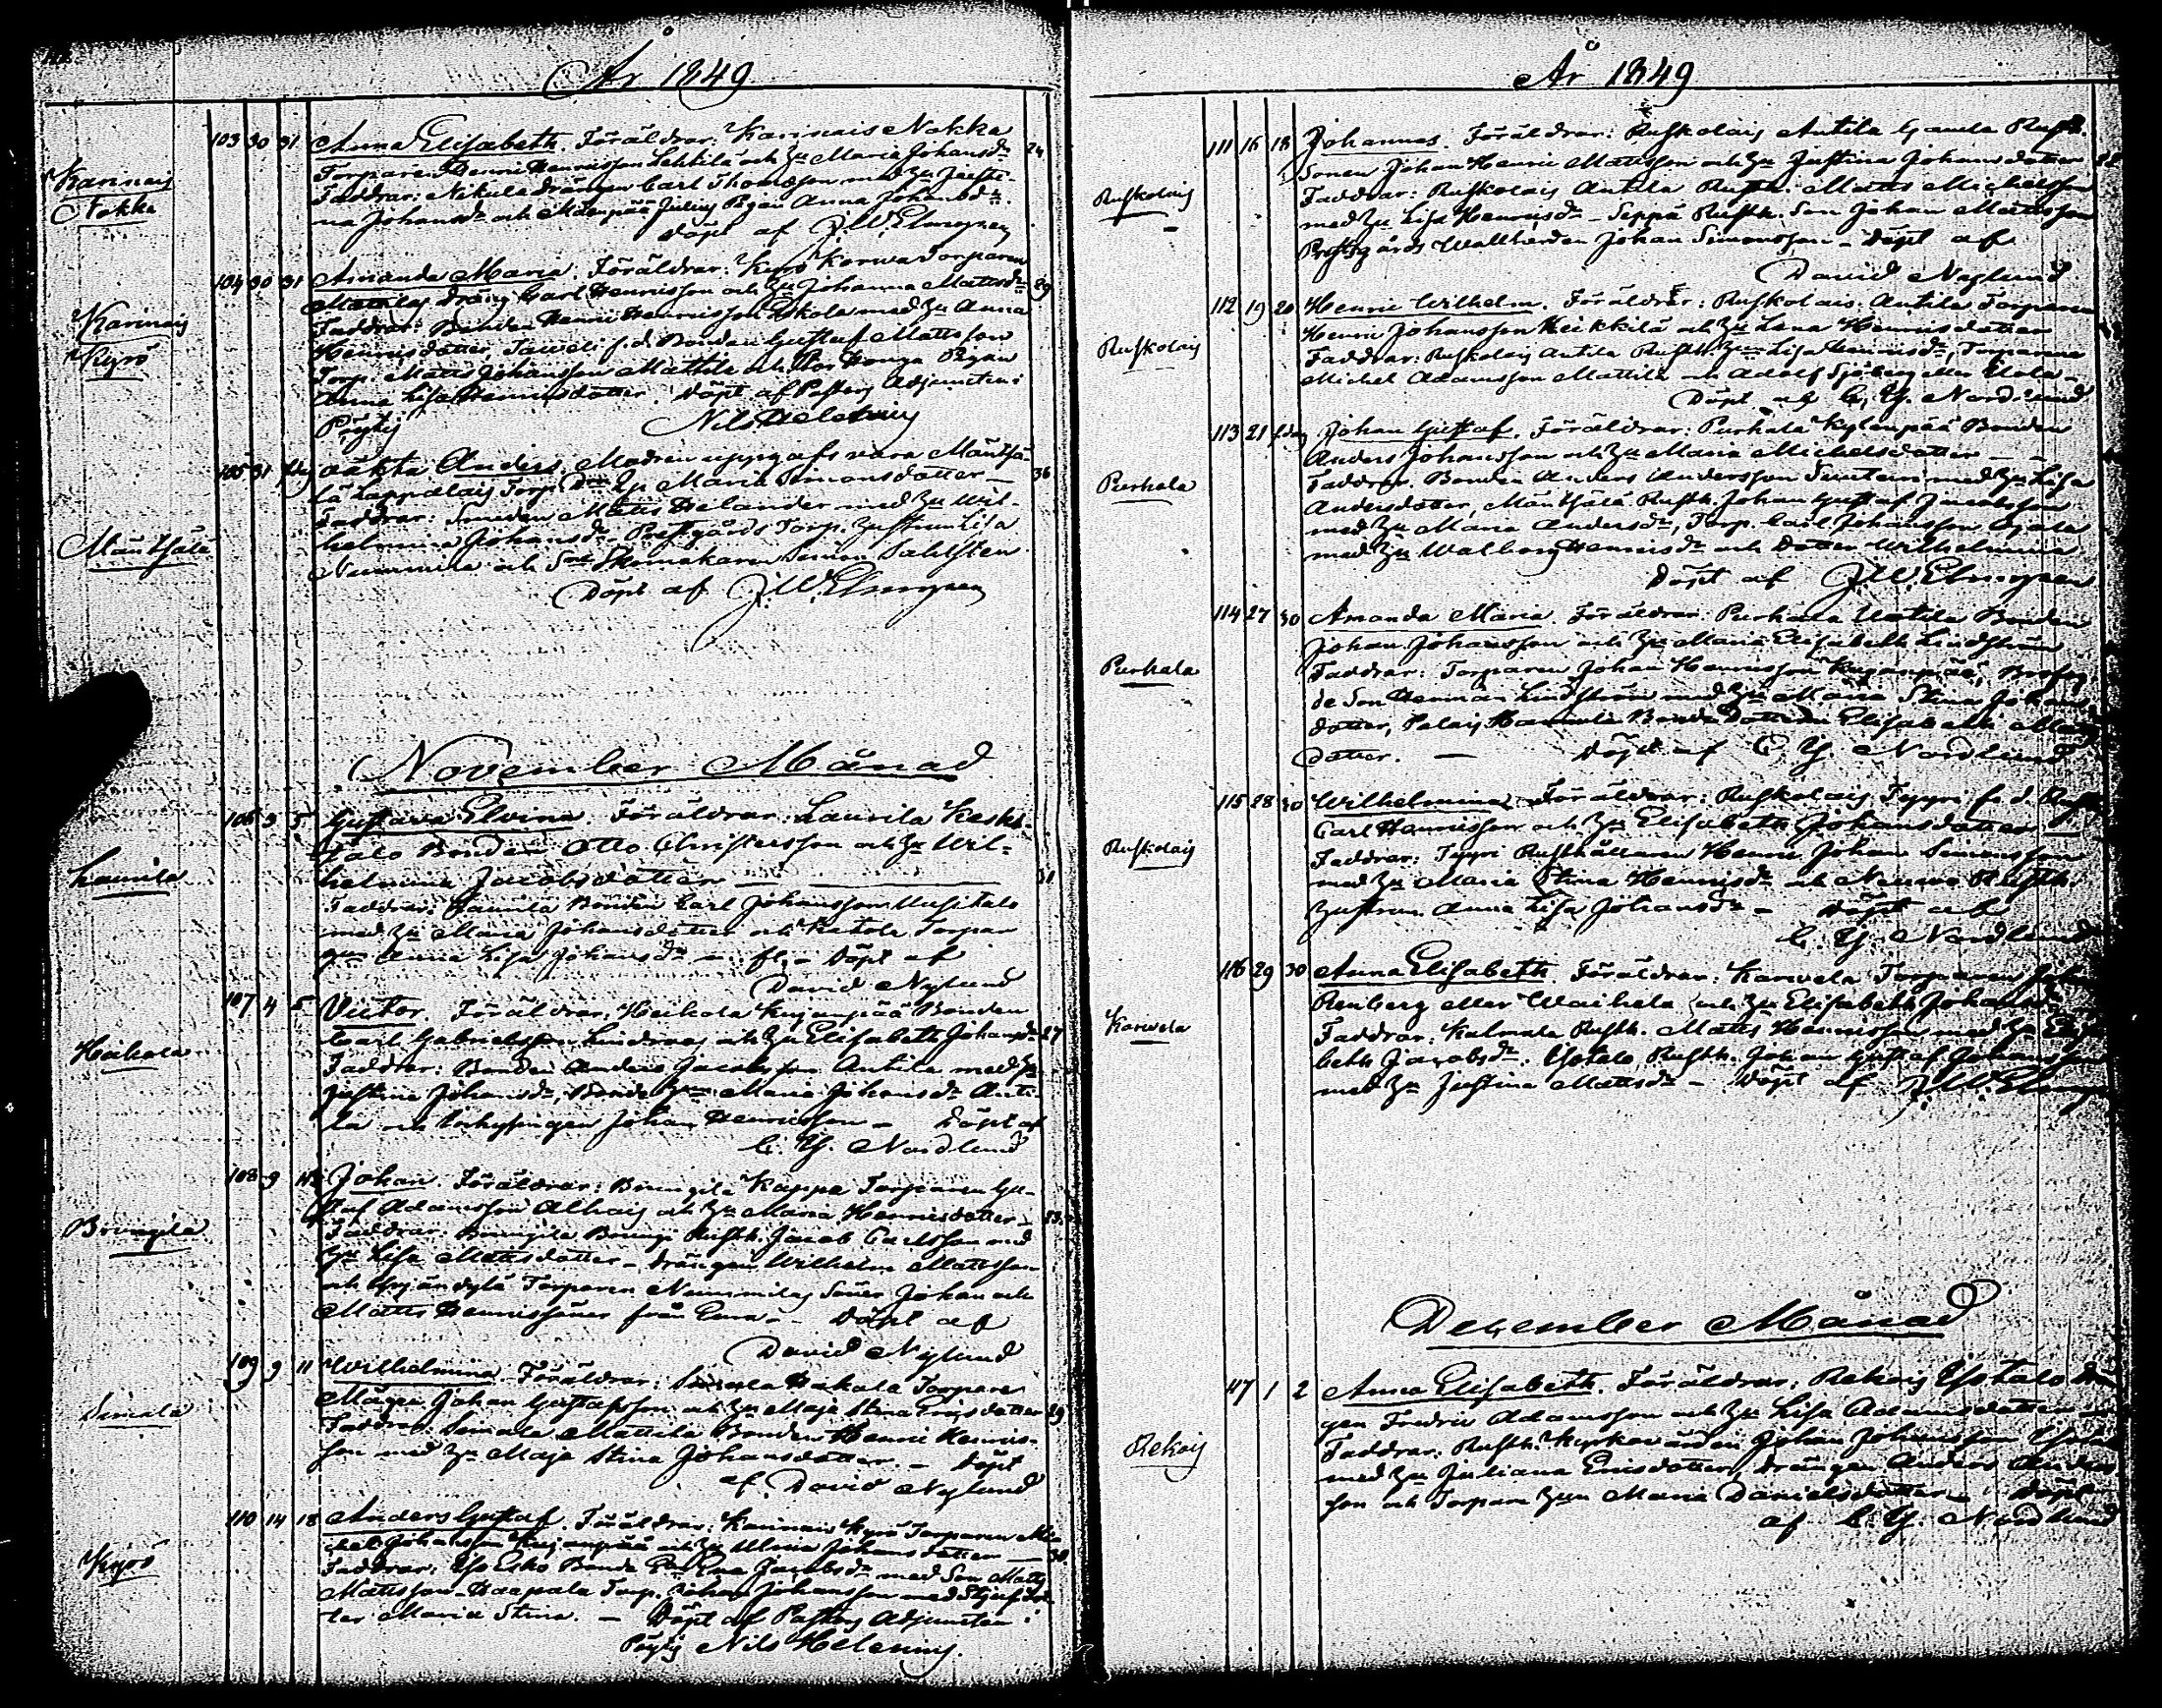 År 1849
Karinais
Nokka
103 30 31 Anna Elisabeth. Föräldrar: Karinais Nokka 24
Torparen Henric Henricsson Lehtilä och Hu Maria Johansdr
Faddrar: Nikula drängen Carl Thomasson med Hu Justi-
na Johansdr och Mäenpää Pigan Anna Johansdr.
döpt af J.W. Elmgren
Karinais
Kyrö
104 30 31 Amanda Maria. Föräldrar: Kyrö Torparen
Mattilas dräng Carl Henricsson och Hu Johanna Mattsdr 29
Faddrar: Bonden Henric Henricsson Eskola med Hu Anna
Henricsdotter, f.d. Bonden Gustaf Mattsson
Torp. Matts Johansson Mattila och Pigan
Anna Lisa Henricsdotter. Döpt af Pastors Adjuncten i
Pöytis Nils Helenius
Mäntsälä
105 31 oäkta Anders. Modren uppgafs vara Mäntsä-
lä Lappalais Torp. Dr Maria Simonsdotter 36
Faddrar: Smeden Matts Helander med Hu Wil-
helmina Johansdr. Prestgårds Torp. hustrun Lisa
Nummila och Skomakaren Simon Sahlsten
Döpt af J.W. Elmgren
November Månad
Laurila
106 3 5 Gustava Elvina. Föräldrar: Laurila Keski
talo Bonden Otto Christersson och Hu Wil-
helmina Jacobsdotter 31
Faddrar: Laurila Bonden Carl Johansson Uusitalo
med Hu Maria Johansdotter och Torpar
Anna Lisa Johansdr m. fl. Döpt af
David Nylund
Heikola
107 4 5 Victor. Föräldrar: Heikola Kujanpää Bonden
Carl Gabrielsson Lindroos och Hu Elisabeth Johansdr 27
Faddrar: Bonden Anders Jacobsson Antila med Hu
Justina Johansdr, Bonde Maria Johansdr Anti-
la och Johan Henricsson - Döpt af
C. G. Nordlund
108 9 Johan. Föräldrar: Kappa Torparen Gu-
staf Adamsson Alhais och Hu Maria Henricsdotter 33
Faddrar: Rusth. Jacob Carlsson med
Hu Lisa Mattsdotter - drängen Wilhelm Mattsson
och Torparen Nummilas Söner Johan och
Matts Henricssöner från Eura - Döpt af
David Nylund
Simala
109 9 11 Wilhelmina. Föräldrar: Simala Torpare
Mågen Johan Gustafsson och Hu Maja Stina Ericsdotter 29
Faddrar: Simala Mattila Bonden Henric Henrics-
son med Hu Maja Stina Johansdotter. - Döpt
af David Nylund
Kyrö
110 14 18 Anders Gustaf. Föräldrar: Karinais Kyrö Torparen Mi-
chel Johansson Kujanpää och Hu Ulrica Johansdotter 30
Faddrar: Esko Bonde Eva Jacobsdr med Son Matts
Mattsson - Haapala Torp. Johan Johansson med Stjufdot-
ter Maria Stina. - Döpt af Pastors Adjuncten i
Pöytis Nils Helenius.
År 1849
Ruskolais
111 16 18 Johannes. Föräldrar: Ruskolais Antila Gamla Rusth.
Sonen Johan Henric Mattsson och Hu Justina Johansdotter
Faddrar: Ruskolais Antila Rusth. Matts Michelsson
med Hu Lisa Henricsdr - Seppä Rusth. Son Johan Mattsson
Prestgårds Wallherden Johan Simonsson - Döpt af
David Nylund
Ruskolais
112 19 20 Henric Wilhelm. Föräldrar: Ruskolais Antila Torparen
Henric Johansson Heikkilä och Hu Lena Henricsdotter
Faddrar: Ruskolais Antila Rusth. Lisa Henricsdr, Torparne
Michel Adamsson Mattila och Adolf Sjöberg eller
Döpt af C. G. Nordlund
Purhala
113 21 Johan Gustaf. Föräldrar: Purhala Kylänpää Bonden
Anders Johansson och Hu Maria Michelsdotter
Faddrar. Bonden Anders Andersson med Hu Lisa
Andersdotter, Mäntsälä Rusth. Johan Gustaf Jacobsson
med Hu Maria Andersdr, Torp. Carl Johansson
med Hu Walborg Henricsdr och Dotter Wilhelmina
Döpt af J.W. Elmgren
Purhala
114 27 30 Amanda Maria. Föräldrar: Purhala Untila Bonden
Johan Johansson och Hu Maria Elisabeth Lindström
Faddrar: Torparen Johan Henricsson Kujanpää,
de Son Herman Lindström med Hu Maria Stina Johans
dotter, Bonde Dottren Elisabeth
dotter. Döpt af C. G. Nordlund
Ruskolais
115 28 30 Wilhelmina. Föräldrar: Ruskolais Tyyri f. d. Rusth
Carl Henricsson och Hu Elisabeth Johansdotter
Faddrar: Tyyri Rusthållaren Henric Johan Simonsson
med Hu Maria Stina Henricsdr och Rusth.
hustrun Anna Lisa Johansdr - Döpt af
C. G. Nordlund
Karwela
116 29 30 Anna Elisabeth. Föräldrar: Karwela Torparen
Renberg eller och Hu Elisabeth Johansdr
Faddrar: Rusth. Matts Henricsson med Hu Elisa
beth Jacobsdr. Rusth. Johan Gustaf Johansson
med Hu Justina Mattsdr - Döpt af J.W. Elmgren
December Månad
Rekois
117 1 2 Anna Elisabeth. Föräldrar: Rekois Ylistalo Drän
gen Fredric Adamsson och Hu Lisa Adamsdotter
Faddrar: Rusth. Kyrkovärden Johan Johansson
med Hu Juliana Ericsdotter, Drängen Anders Anders
son och Torpare Maria Danielsdotter - Döpt
af C. G. Nordlund